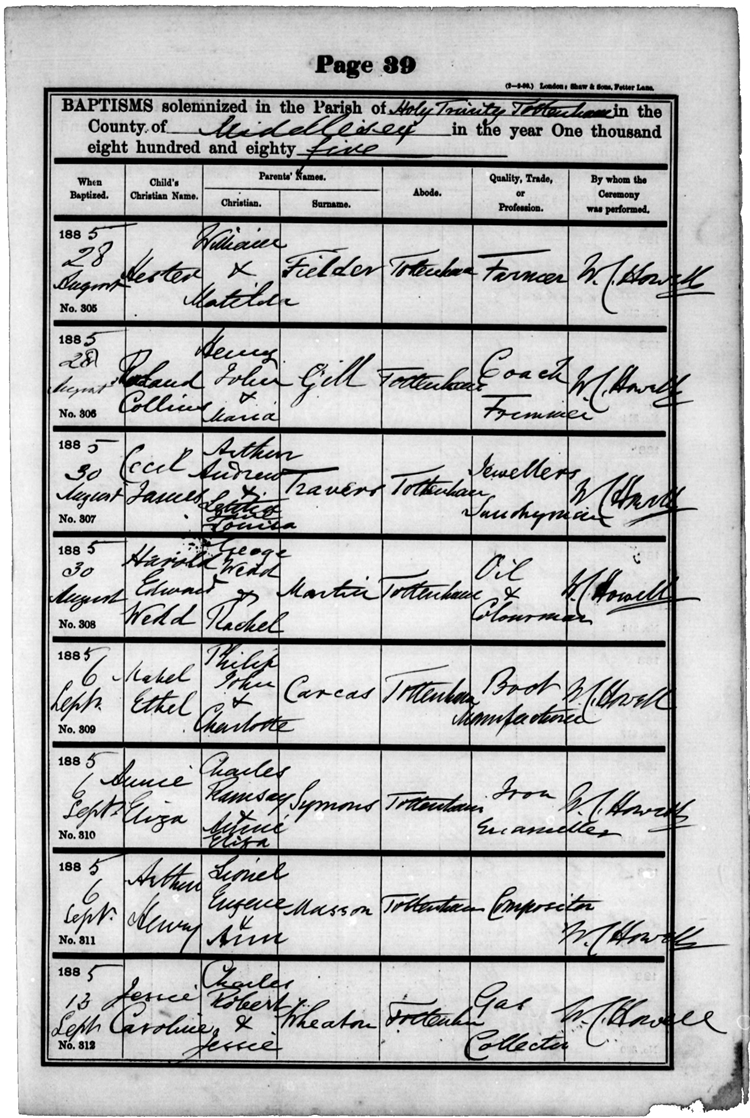 Page 39
(2—9-80.) London: Shaw & Sons, Fetter Lane.
BAPTISMS solemnized in the Parish of Holy Trinity Tottenham in the
County of Middlesex in the year One thousand
eight hundred and eighty five
When Baptized. Child's Christian Name. Parents' Names. Christian. Surname. Abode. Quality, Trade, or Profession. By whom the Ceremony was performed.
1885
28
August
No. 305
Hester
William
&
Matilda
Fielder
Tottenham
Farmer
W.C. Howell
1885
28
August
No. 306
Roland
Collins
Henry
John
&
Maria
Gill
Tottenham
Coach
Trimmer
W.C. Howell
1885
30
August
No. 307
Cecil
James
Arthur
Andrew
&
Louisa
Travers
Tottenham
Jewellers
Sundryman
W.C. Howell
1885
30
August
No. 308
Harold
Edward
Wedd
George
Wedd
&
Rachel
Martin
Tottenham
Oil
&
Colourman
W.C. Howell
1885
6
Sept.
No. 309
Mabel
Ethel
Philip
John
&
Charlotte
Carcas
Tottenham
Boot
Manufacturer
W.C. Howell
1885
6
Sept.
No. 310
Annie
Eliza
Charles
Ramsay
&
Annie
Eliza
Symons
Tottenham
Iron
Enameller
W.C. Howell
1885
6
Sept.
No. 311
Arthur
Henry
Lionel
Eugene
&
Ann
Masson
Tottenham
Compositor
W.C. Howell
1885
13
Sept.
No. 312
Jessie
Caroline
Charles
Robert
&
Jessie
Wheaton
Tottenham
Gas
Collector
W.C. Howell